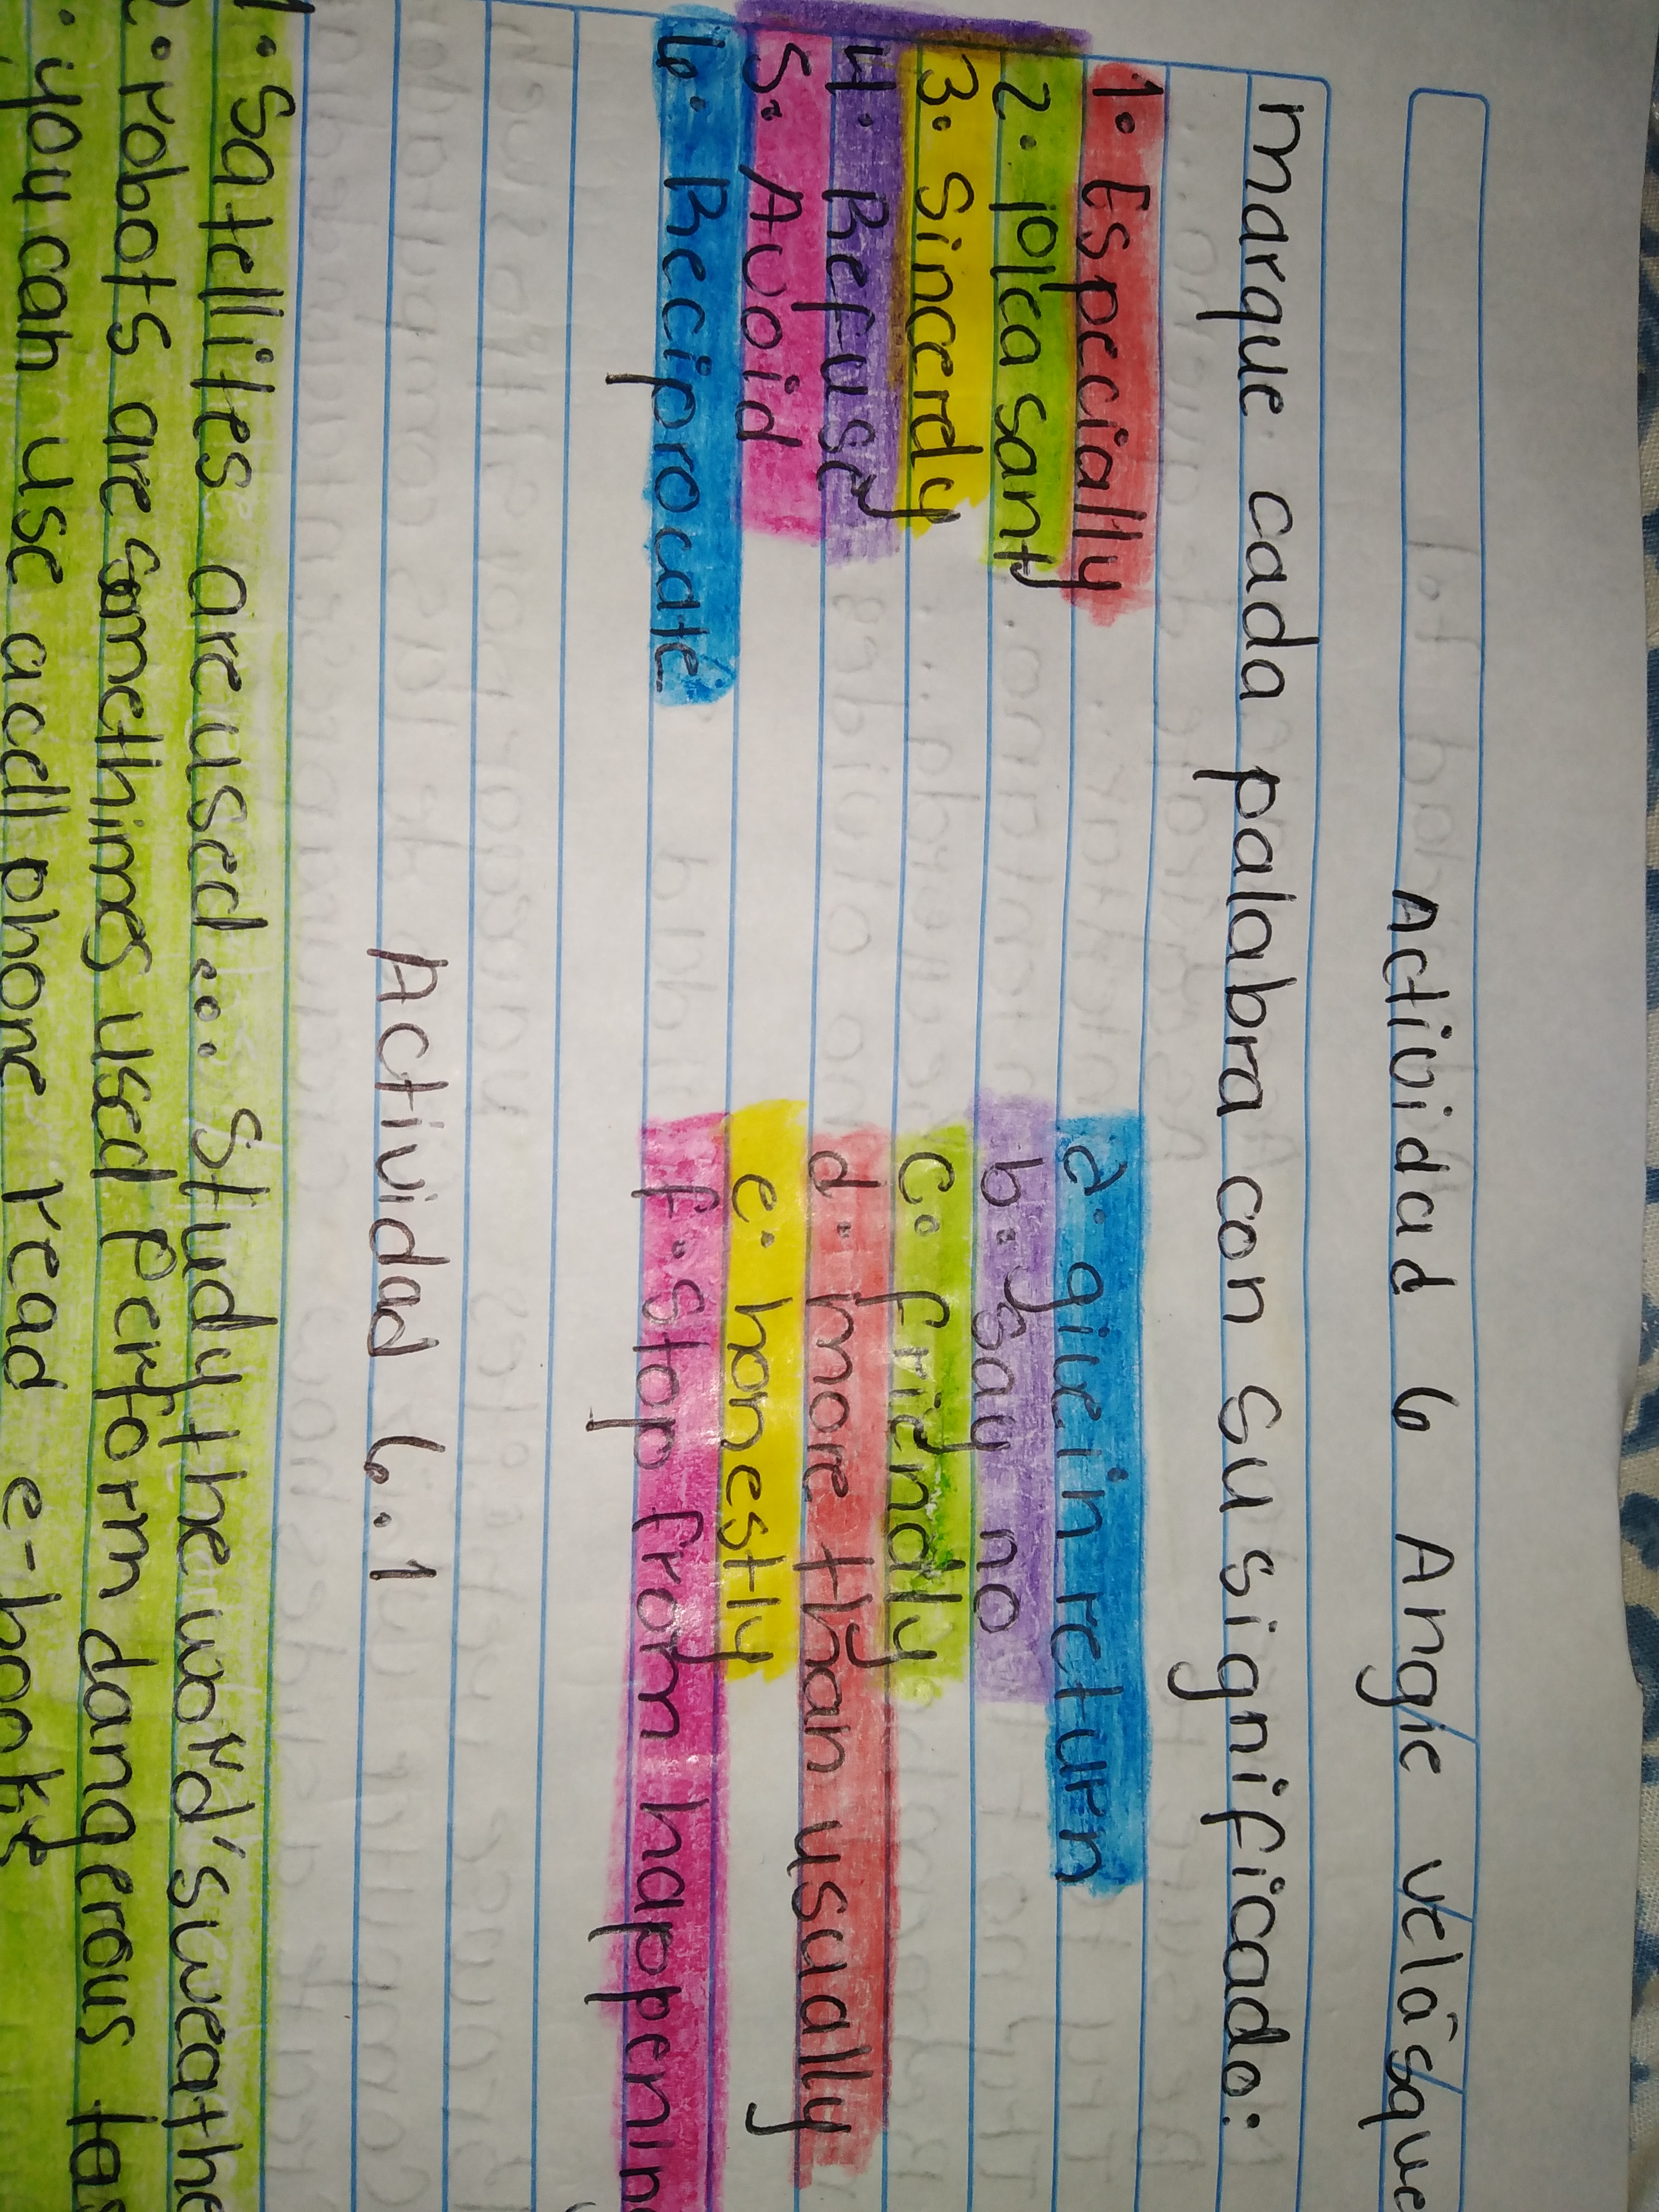 Actividad 6 Angie velásque
marque cada palabra con su significado:
1. Especially
2. pleasant
3. Sincerely
4. Refuse
5. Avoid
6. Reciprocate
a. give in return
b. say no
c. friendly
d. more than usually
e. honestly
f. stop from happenin
Actividad 6.1
1. Satellites are used... study the world's weathe
2. robots are somethimes used Perform dangerous tas
. you can use a cell phone read e-books